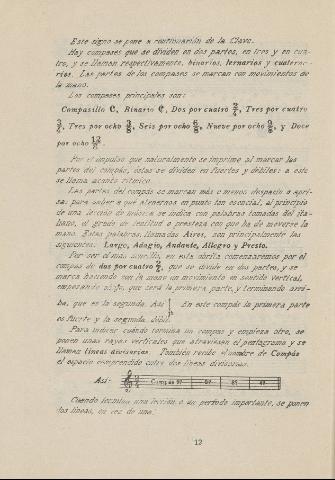 Este signo se pone a continuación de la Clave.
Hay compases que se dividen en dos partes, en tres y en cua-
tro, y se llaman respectivamente, binarios, ternarios y cuaterna-
rios. Las partes de los compases se marcan con movimientos de
la mano.
Los compases principales son:
Compasillo C, Binario ₵, Dos por cuatro 2/4, Tres por cuatro
3/4, Tres por ocho 3/8, Seis por ocho 6/8, Nueve por ocho 9/8, y Doce
por ocho 12/8.
Por el impulso que naturalmente se imprime al marcar las
partes del compás, estas se dividen en fuertes y débiles: a esto
se llama acento rítmico.
Las partes del compás se marcan más o menos despacio o apri-
sa: para saber a qué atenernos en punto tan esencial, al principio
de una lección de música se indica con palabras tomadas del ita-
liano, el grado de lentitud o presteza con que ha de moverse la
mano. Estas palabras, llamadas Aires, son principalmente las
siguientes: Largo, Adagio, Andante, Allegro y Presto.
Por ser el más sencillo, en esta obrita comenzaremos por el
compás de dos por cuatro 2/4, que se divide en dos partes, y se
marca haciendo con la mano un movimiento en sentido vertical,
empezando abajo, que será la primera parte, y terminando arri-
ba, que es la segunda. Así En este compás la primera parte
es fuerte y la segunda débil.
Para indicar cuándo termina un compás y empieza otro, se
ponen unas rayas verticales que atraviesan el pentagrama y se
llaman líneas divisorias. También recibe el nombre de Compás
el espacio comprendido entre dos líneas divisorias.
Así: Compás 1º
Cuando termina una lección o un período importante, se ponen
dos líneas, en vez de una.
12